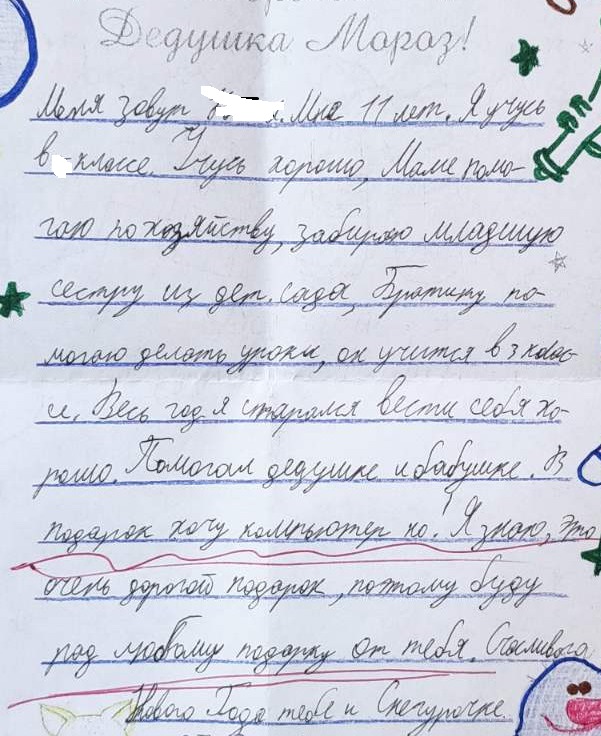 Дедушка Мороз!
Меня зовут. Мне 11 лет. Я учусь
в классе. Учусь хорошо, Маме помо-
гаю по хозяйству, забираю младшую
сестру из дет. сада, Братику по-
могаю делать уроки, он учится в 3 клас-
се. Весь год я старался вести себя хо-
рошо. Помогал дедушке и бабушке. В
подарок хочу компьютер но! Я знаю, это
очень дорогой подарок, поэтому буду
рад любому подарку от тебя. Счасливого
Нового Года тебе и Снегурочке.